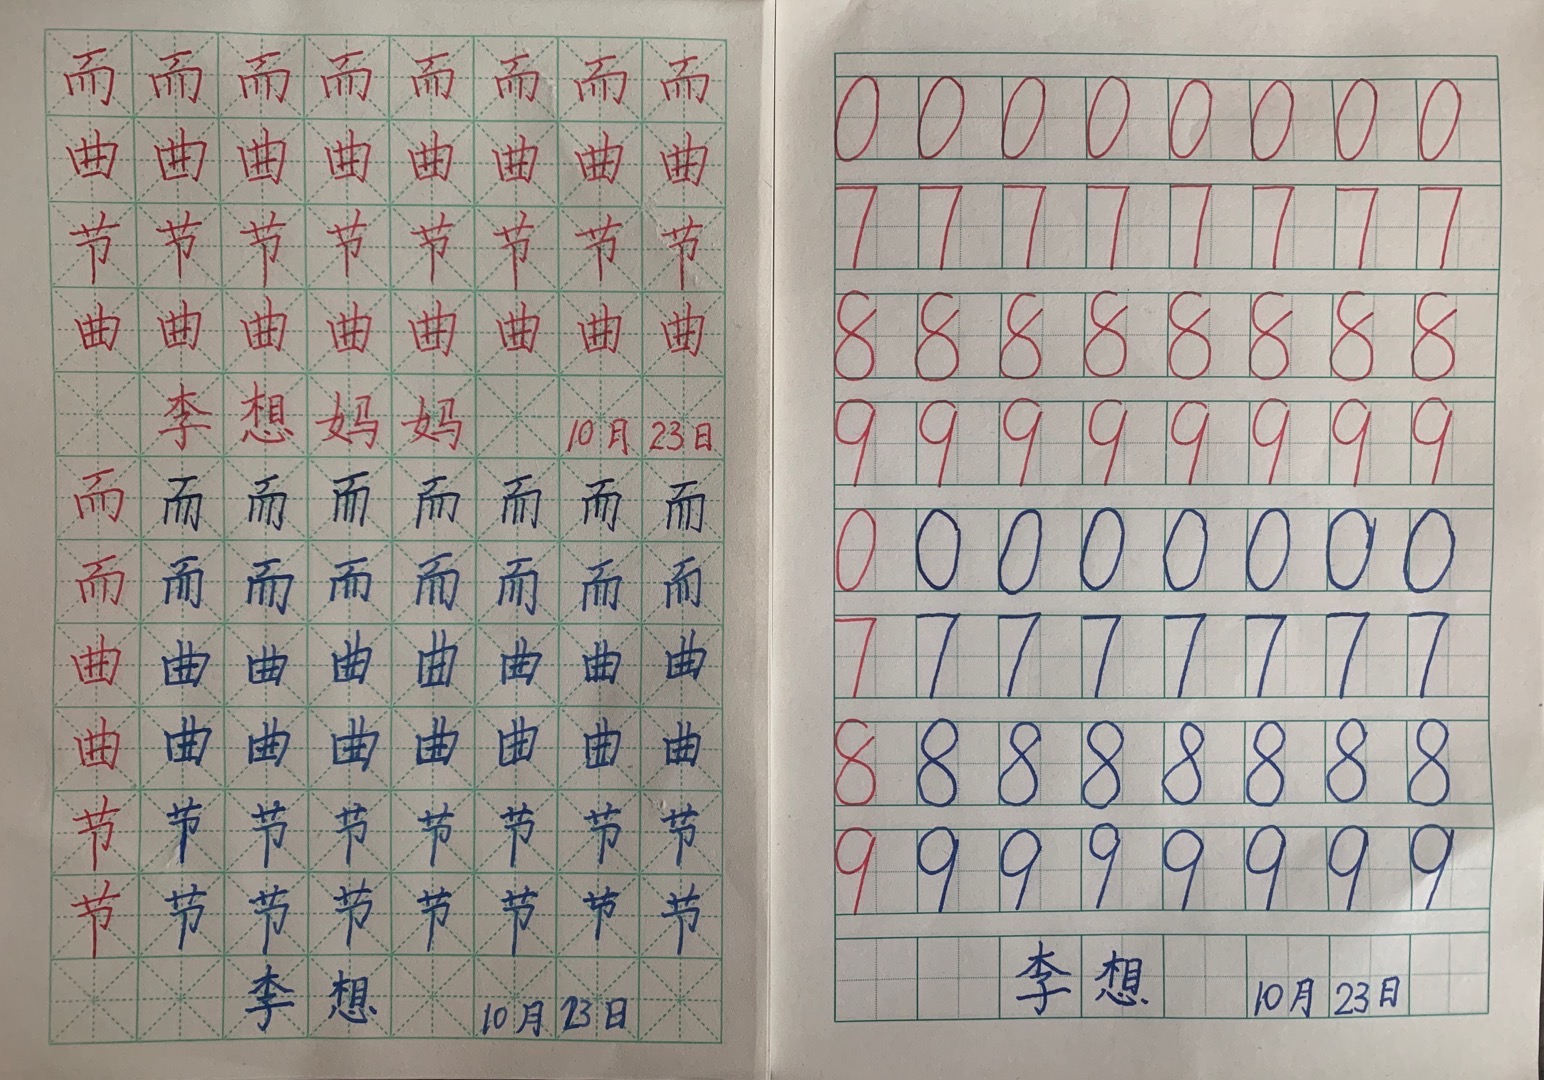 而 而 而 而 而 而 而 而
曲 曲 曲 曲 曲 曲 曲 曲
节 节 节 节 节 节 节 节
曲 曲 曲 曲 曲 曲 曲 曲
李 想 妈 妈 10月 23日
而 而 而 而 而 而 而 而
而 而 而 而 而 而 而 而
曲 曲 曲 曲 曲 曲 曲 曲
曲 曲 曲 曲 曲 曲 曲 曲
节 节 节 节 节 节 节 节
节 节 节 节 节 节 节 节
李 想 10月 23日
0 0 0 0 0 0 0 0
7 7 7 7 7 7 7 7
8 8 8 8 8 8 8 8
9 9 9 9 9 9 9 9
0 0 0 0 0 0 0 0
7 7 7 7 7 7 7 7
8 8 8 8 8 8 8 8
9 9 9 9 9 9 9 9
李 想 10月 23日